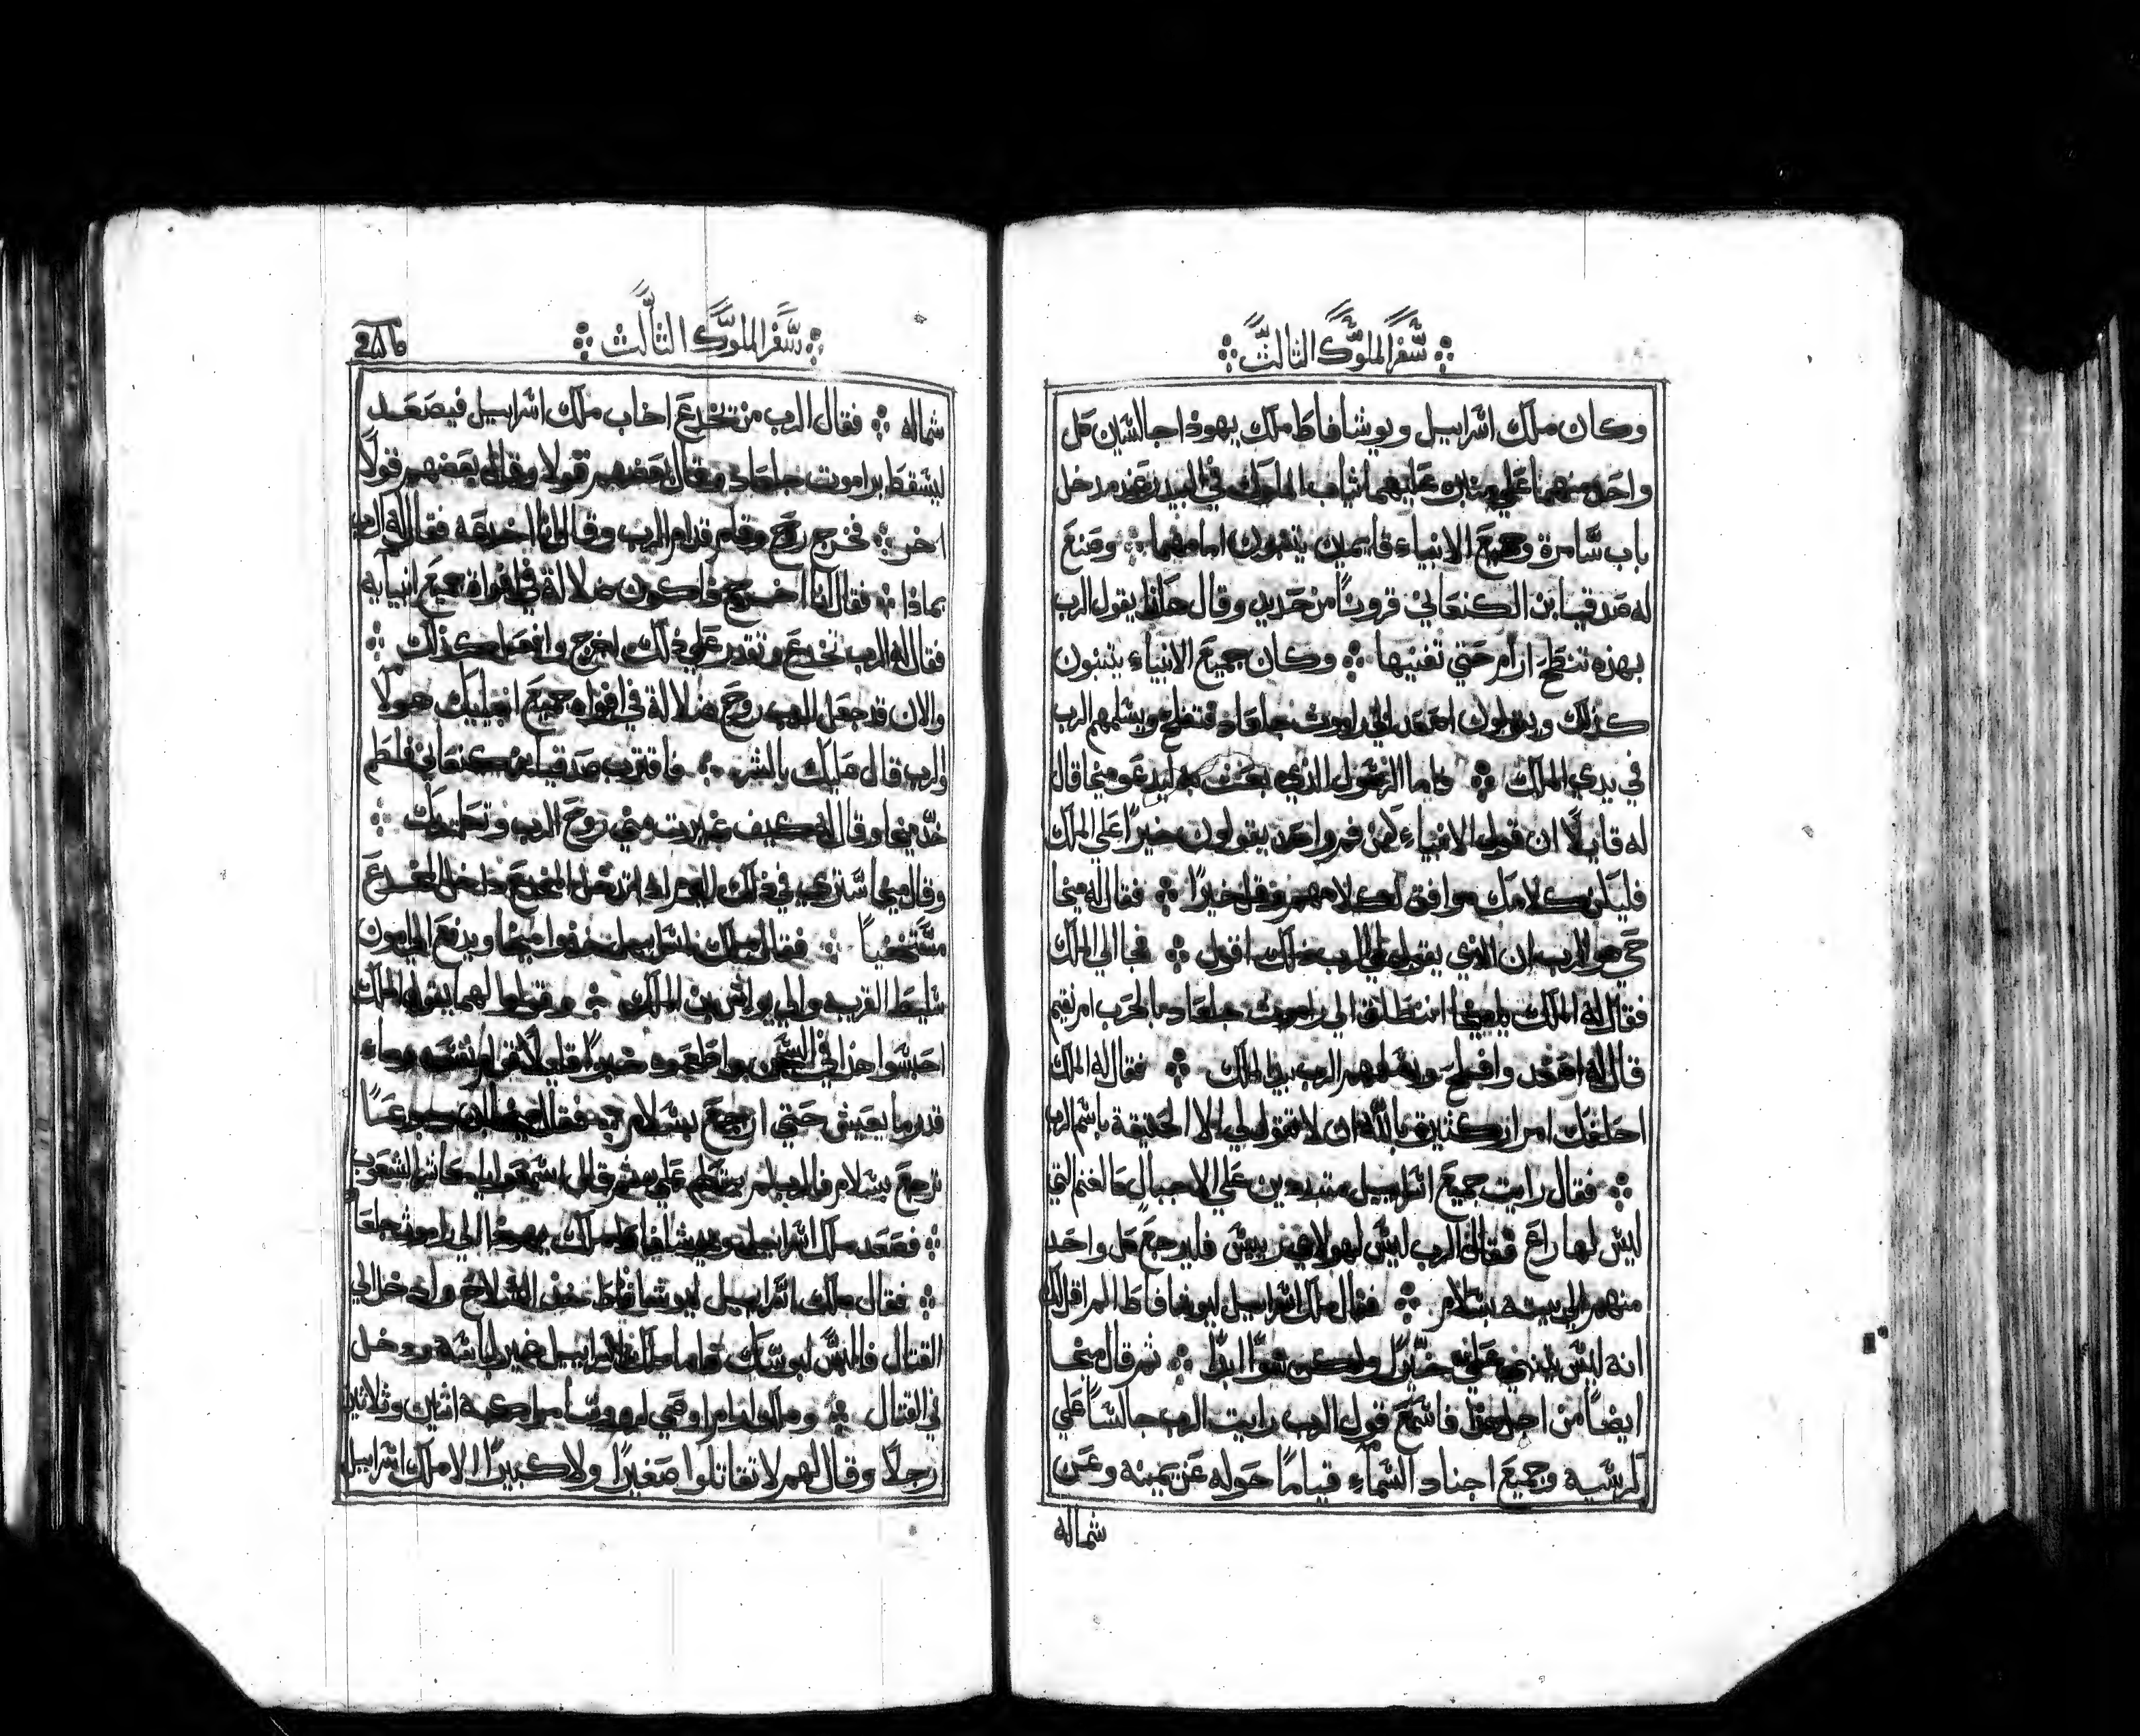 سفر الملوك الثالث
وكان ملك اسرابيل ويوشافاط ملك يهودا جالسين كل
واحد منهما علي منابره عليهما ثياب الملوك في البيدر عند مدخل
باب سامرة وجميع الانبياء قايمين يتنبون امامهما وصنع
له صدقيا بن الكنعاني قرونا من حديد وقال هكذا يقول الرب
بهذه تنطح ارام حتي تفنيها وكان جميع الانبياء يتنبون
كذلك ويقولون اصعد الي راموث جلعاد فتفلح ويسلمهم الرب
في يدي الملك واما الرسول الذي بعث به ليدعو ميخا قال
له قايلا ان قول الانبياء كمن فم واحد يقولون خيرا علي الملك
فليكن كلامك موافق لكلامهم وقل خيرا فقال له ميخا
حي هو الرب ان الذي يقوله لي الرب ذلك اقول فجا الي الملك
فقال له الملك يا ميخا انتطلق الي راموث جلعاد بالحرب ام نقيم
قال له اصعد وافلح ويسلمهم الرب بيد الملك فقال له الملك
احلفك امرار كثيرة بالله ان لا تقول لي الا الحقيقة باسم الرب
فقال رايت جميع اسرابيل متبددين علي الاجبال كالغنم التي
ليس لها راع فقال الرب ليس لهولاهم رييس فليرجع كل واحد
منهم الي بيته بسلام فقال ملك اسرابيل ليوشافاط الم اقل لك
انه ليس يتنبي علي خيرا ولكن سوا ابدا ثم قال ميخا
ايضا من اجل هذا فاسمع قول الرب رايت الرب جالسا علي
كرسيه وجميع اجناد السماء قياما حوله عن يمينه وعن
شماله
سفر الملوك الثالث
شماله فقال الرب من تخدع اخاب ملك اسرابيل فيصعد
ليسقط براموت جلعاد وقال بعضهم قولا وقال بعضهم قولا
اخر فخرج روح وقام قدام الرب وقال انا اخدعه فقال له الرب
بماذا فقال انا اخرج فاكون ضلالة في افواه جميع انبيايه
فقال له الرب تخدع وتقدر علي ذلك اخرج وافعل كذلك
والان قد جعل الرب روح ضلالة في افواه جميع انبيايك هولا
والرب قال عليك بالشر فاقترب صدقيا بن كنعاني فلطم
خد ميخا وقال له كيف عبرت مني روح الرب وتكلمت
وقال ميخا سترى في ذلك اليوم اذا تدخل المخدع داخل المخدع
مستخفيا فقال ملك اسرابيل خذوا ميخا ويدفع الي امون
سليط القرية والي يواش بن الملك وقولوا لهما يقول الملك
احبسوا هذا في السجن واطعموه خبزا قليلا ثم اسقه ماء
قدر ما يعيش حتي ارجع بسلام فقال ميخا ان رجوعا
ترجع بسلام فالرب لم يتكلم علي ثم قال اسمعوا يا معاشر الشعوب
فصعد ملك اسرابيل ويوشافاط ملك يهودا الي راموث جلعاد
فقال ملك اسرابيل ليوشافاط خذ السلاح وادخل الي
القتال فالبس لبوسك واما ملك اسرابيل فغير لباسه ودخل
في القتال وملك ارام اوصي لروسا مراكبه اثنين وثلاثين
رجلا وقال لهم لا تقاتلوا صغيرا ولا كبيرا الا ملك اسرابيل